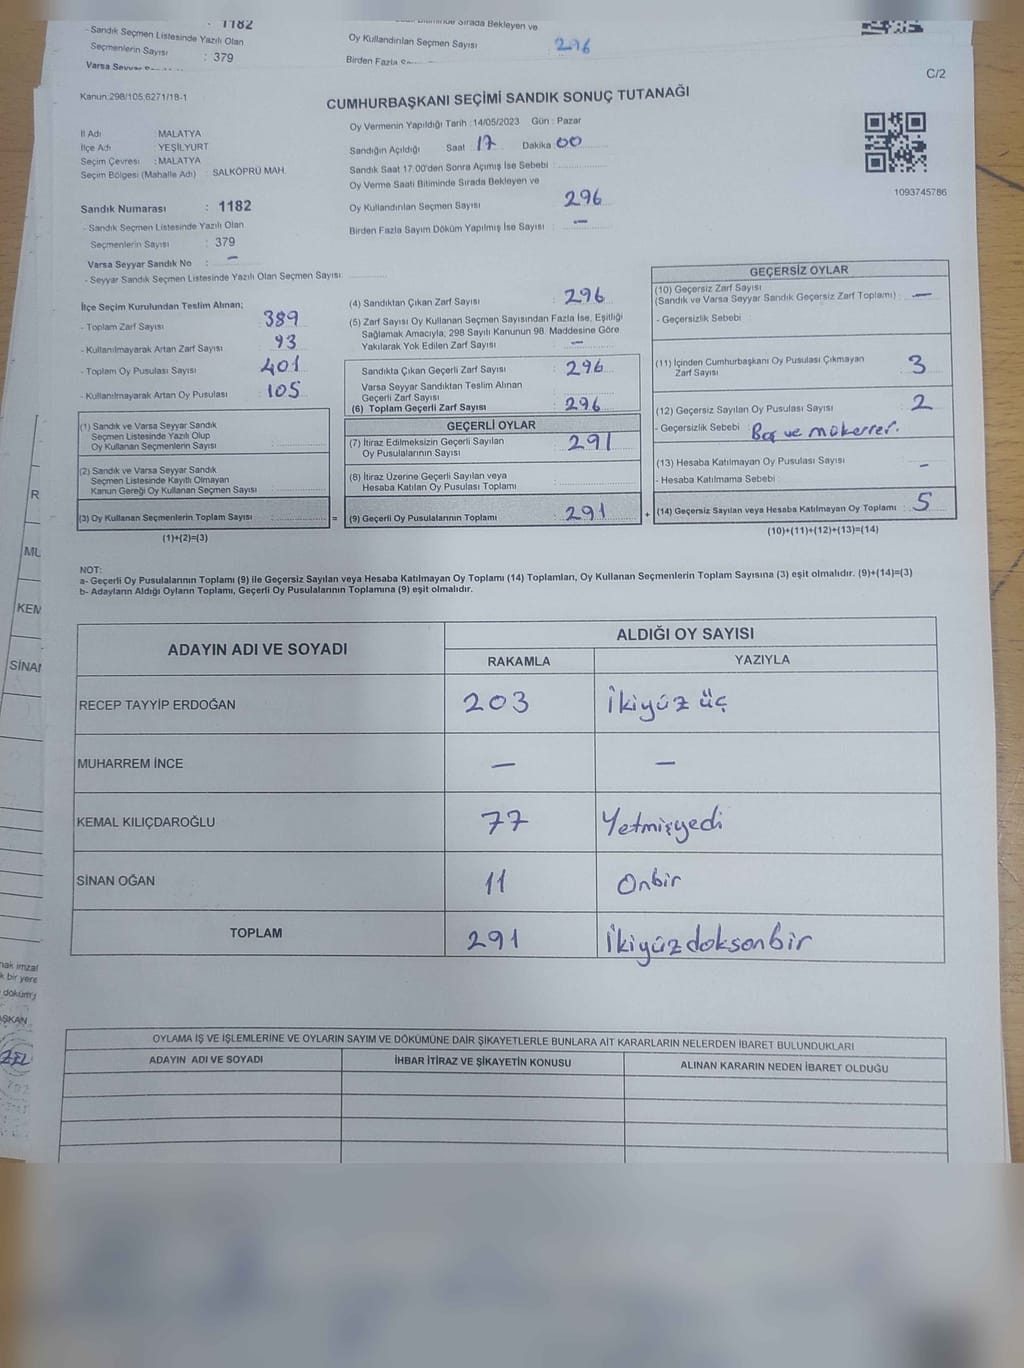 1182
- Sandık Seçmen Listesinde Yazılı Olan
Seçmenlerin Sayısı : 379
Sırada Bekleyen ve
Oy Kullandırılan Seçmen Sayısı 296
Birden Fazla
C/2
Kanun:298/105,6271/18-1
CUMHURBAŞKANI SEÇİMİ SANDIK SONUÇ TUTANAĞI
İl Adı : MALATYA
İlçe Adı : YEŞİLYURT
Seçim Çevresi : MALATYA
Seçim Bölgesi (Mahalle Adı) SALKÖPRÜ MAH.
Sandık Numarası : 1182
- Sandık Seçmen Listesinde Yazılı Olan
Seçmenlerin Sayısı : 379
Varsa Seyyar Sandık No : —
- Seyyar Sandık Seçmen Listesinde Yazılı Olan Seçmen Sayısı:
Oy Vermenin Yapıldığı Tarih :14/05/2023 Gün : Pazar
Sandığın Açıldığı Saat : 17 Dakika 00
Sandık Saat 17:00'den Sonra Açımış İse Sebebi :
Oy Verme Saati Bitiminde Sırada Bekleyen ve
Oy Kullandırılan Seçmen Sayısı 296
Birden Fazla Sayım Döküm Yapılmış İse Sayısı : —
1093745786
İlçe Seçim Kurulundan Teslim Alınan;
- Toplam Zarf Sayısı 389
- Kullanılmayarak Artan Zarf Sayısı 93
- Toplam Oy Pusulası Sayısı 401
- Kullanılmayarak Artan Oy Pusulası 105
(1) Sandık ve Varsa Seyyar Sandık
Seçmen Listesinde Yazılı Olup
Oy Kullanan Seçmenlerin Sayısı :
(2) Sandık ve Varsa Seyyar Sandık
Seçmen Listesinde Kayıtlı Olmayan
Kanun Gereği Oy Kullanan Seçmen Sayısı :
(3) Oy Kullanan Seçmenlerin Toplam Sayısı : =
(1)+(2)=(3)
(4) Sandıktan Çıkan Zarf Sayısı : 296
(5) Zarf Sayısı Oy Kullanan Seçmen Sayısından Fazla İse, Eşitliği
Sağlamak Amacıyla; 298 Sayılı Kanunun 98. Maddesine Göre
Yakılarak Yok Edilen Zarf Sayısı : —
Sandıkta Çıkan Geçerli Zarf Sayısı : 296
Varsa Seyyar Sandıktan Teslim Alınan
Geçerli Zarf Sayısı :
(6) Toplam Geçerli Zarf Sayısı : 296
GEÇERLİ OYLAR
(7) İtiraz Edilmeksizin Geçerli Sayılan
Oy Pusulalarının Sayısı : 291
(8) İtiraz Üzerine Geçerli Sayılan veya
Hesaba Katılan Oy Pusulası Toplamı :
(9) Geçerli Oy Pusulalarının Toplamı : 291 +
GEÇERSİZ OYLAR
(10) Geçersiz Zarf Sayısı
(Sandık ve Varsa Seyyar Sandık Geçersiz Zarf Toplamı) : —
- Geçersizlik Sebebi :
(11) İçinden Cumhurbaşkanı Oy Pusulası Çıkmayan
Zarf Sayısı 3
(12) Geçersiz Sayılan Oy Pusulası Sayısı 2
- Geçersizlik Sebebi : Boş ve mükerrer.
(13) Hesaba Katılmayan Oy Pusulası Sayısı —
- Hesaba Katılmama Sebebi :
(14) Geçersiz Sayılan veya Hesaba Katılmayan Oy Toplamı : 5
(10)+(11)+(12)+(13)=(14)
NOT:
a- Geçerli Oy Pusulalarının Toplamı (9) ile Geçersiz Sayılan veya Hesaba Katılmayan Oy Toplamı (14) Toplamları, Oy Kullanan Seçmenlerin Toplam Sayısına (3) eşit olmalıdır. (9)+(14)=(3)
b- Adayların Aldığı Oyların Toplamı, Geçerli Oy Pusulalarının Toplamına (9) eşit olmalıdır.
ADAYIN ADI VE SOYADI ALDIĞI OY SAYISI
RAKAMLA YAZIYLA
RECEP TAYYİP ERDOĞAN 203 İkiyüz üç
MUHARREM İNCE — —
KEMAL KILIÇDAROĞLU 77 Yetmişyedi
SİNAN OĞAN 11 Onbir
TOPLAM 291 İkiyüzdoksanbir
OYLAMA İŞ VE İŞLEMLERİNE VE OYLARIN SAYIM VE DÖKÜMÜNE DAİR ŞİKAYETLERLE BUNLARA AİT KARARLARIN NELERDEN İBARET BULUNDUKLARI
ADAYIN ADI VE SOYADI İHBAR İTİRAZ VE ŞİKAYETİN KONUSU ALINAN KARARIN NEDEN İBARET OLDUĞU